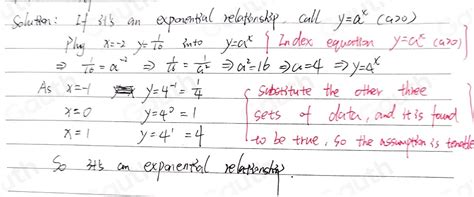 Solution: If it's an exponential relationship, call y=aˣ (a>0)
Plug x=-2 y=1/16 into y=aˣ { Index equation y=aˣ (a>0)
⇒ 1/16 = a⁻² ⇒ 1/16 = 1/a² ⇒ a²=16 ⇒ a=4 ⇒ y=4ˣ
As x=-1 y=4⁻¹=1/4 { Substitute the other three
x=0 y=4⁰=1 sets of data, and it is found
x=1 y=4¹=4 to be true, so the assumption is tenable
So it's an exponential relationship.